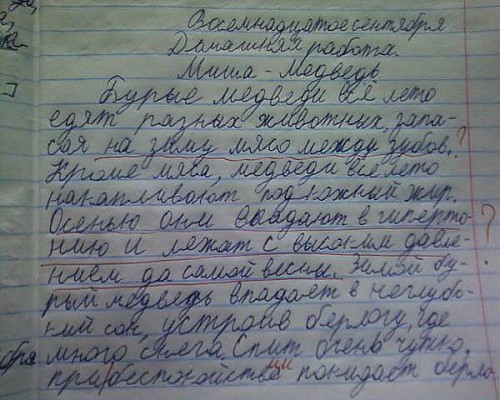 Восемнадцатое сентября
Домашняя работа.
Миша - Медведь
Бурые медведи всё лето
едят разных животных, запа-
сая на зиму мясо между зубов. ?
Кроме мяса, медведи всё лето
накапливают подкожный жир.
Осенью они впадают в гиперто-
нию и лежат с высоким давле- ?
нием до самой весны. Зимой бу-
рый медведь впадает в неглубо-
кий сон, устроив берлогу, где
много снега. Спит очень чутко,
при беспокойстве покидает берло-